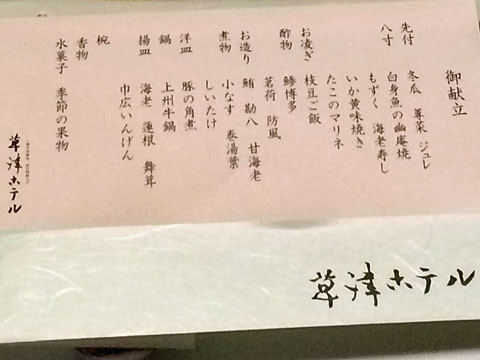 御献立
先付 冬瓜 蓴菜 ジュレ
八寸 白身魚の幽庵焼
もずく 海老寿し
いか黄味焼き
たこのマリネ
お凌ぎ 枝豆ご飯
酢物 鯵博多
茗荷 防風
お造り 鮪 勘八 甘海老
煮物 小なす 巻湯葉
しいたけ
洋皿 豚の角煮
鍋 上州牛鍋
揚皿 海老 蓮根 舞茸
巾広いんげん
椀
香物
水菓子 季節の果物
草津ホテル
草津ホテル